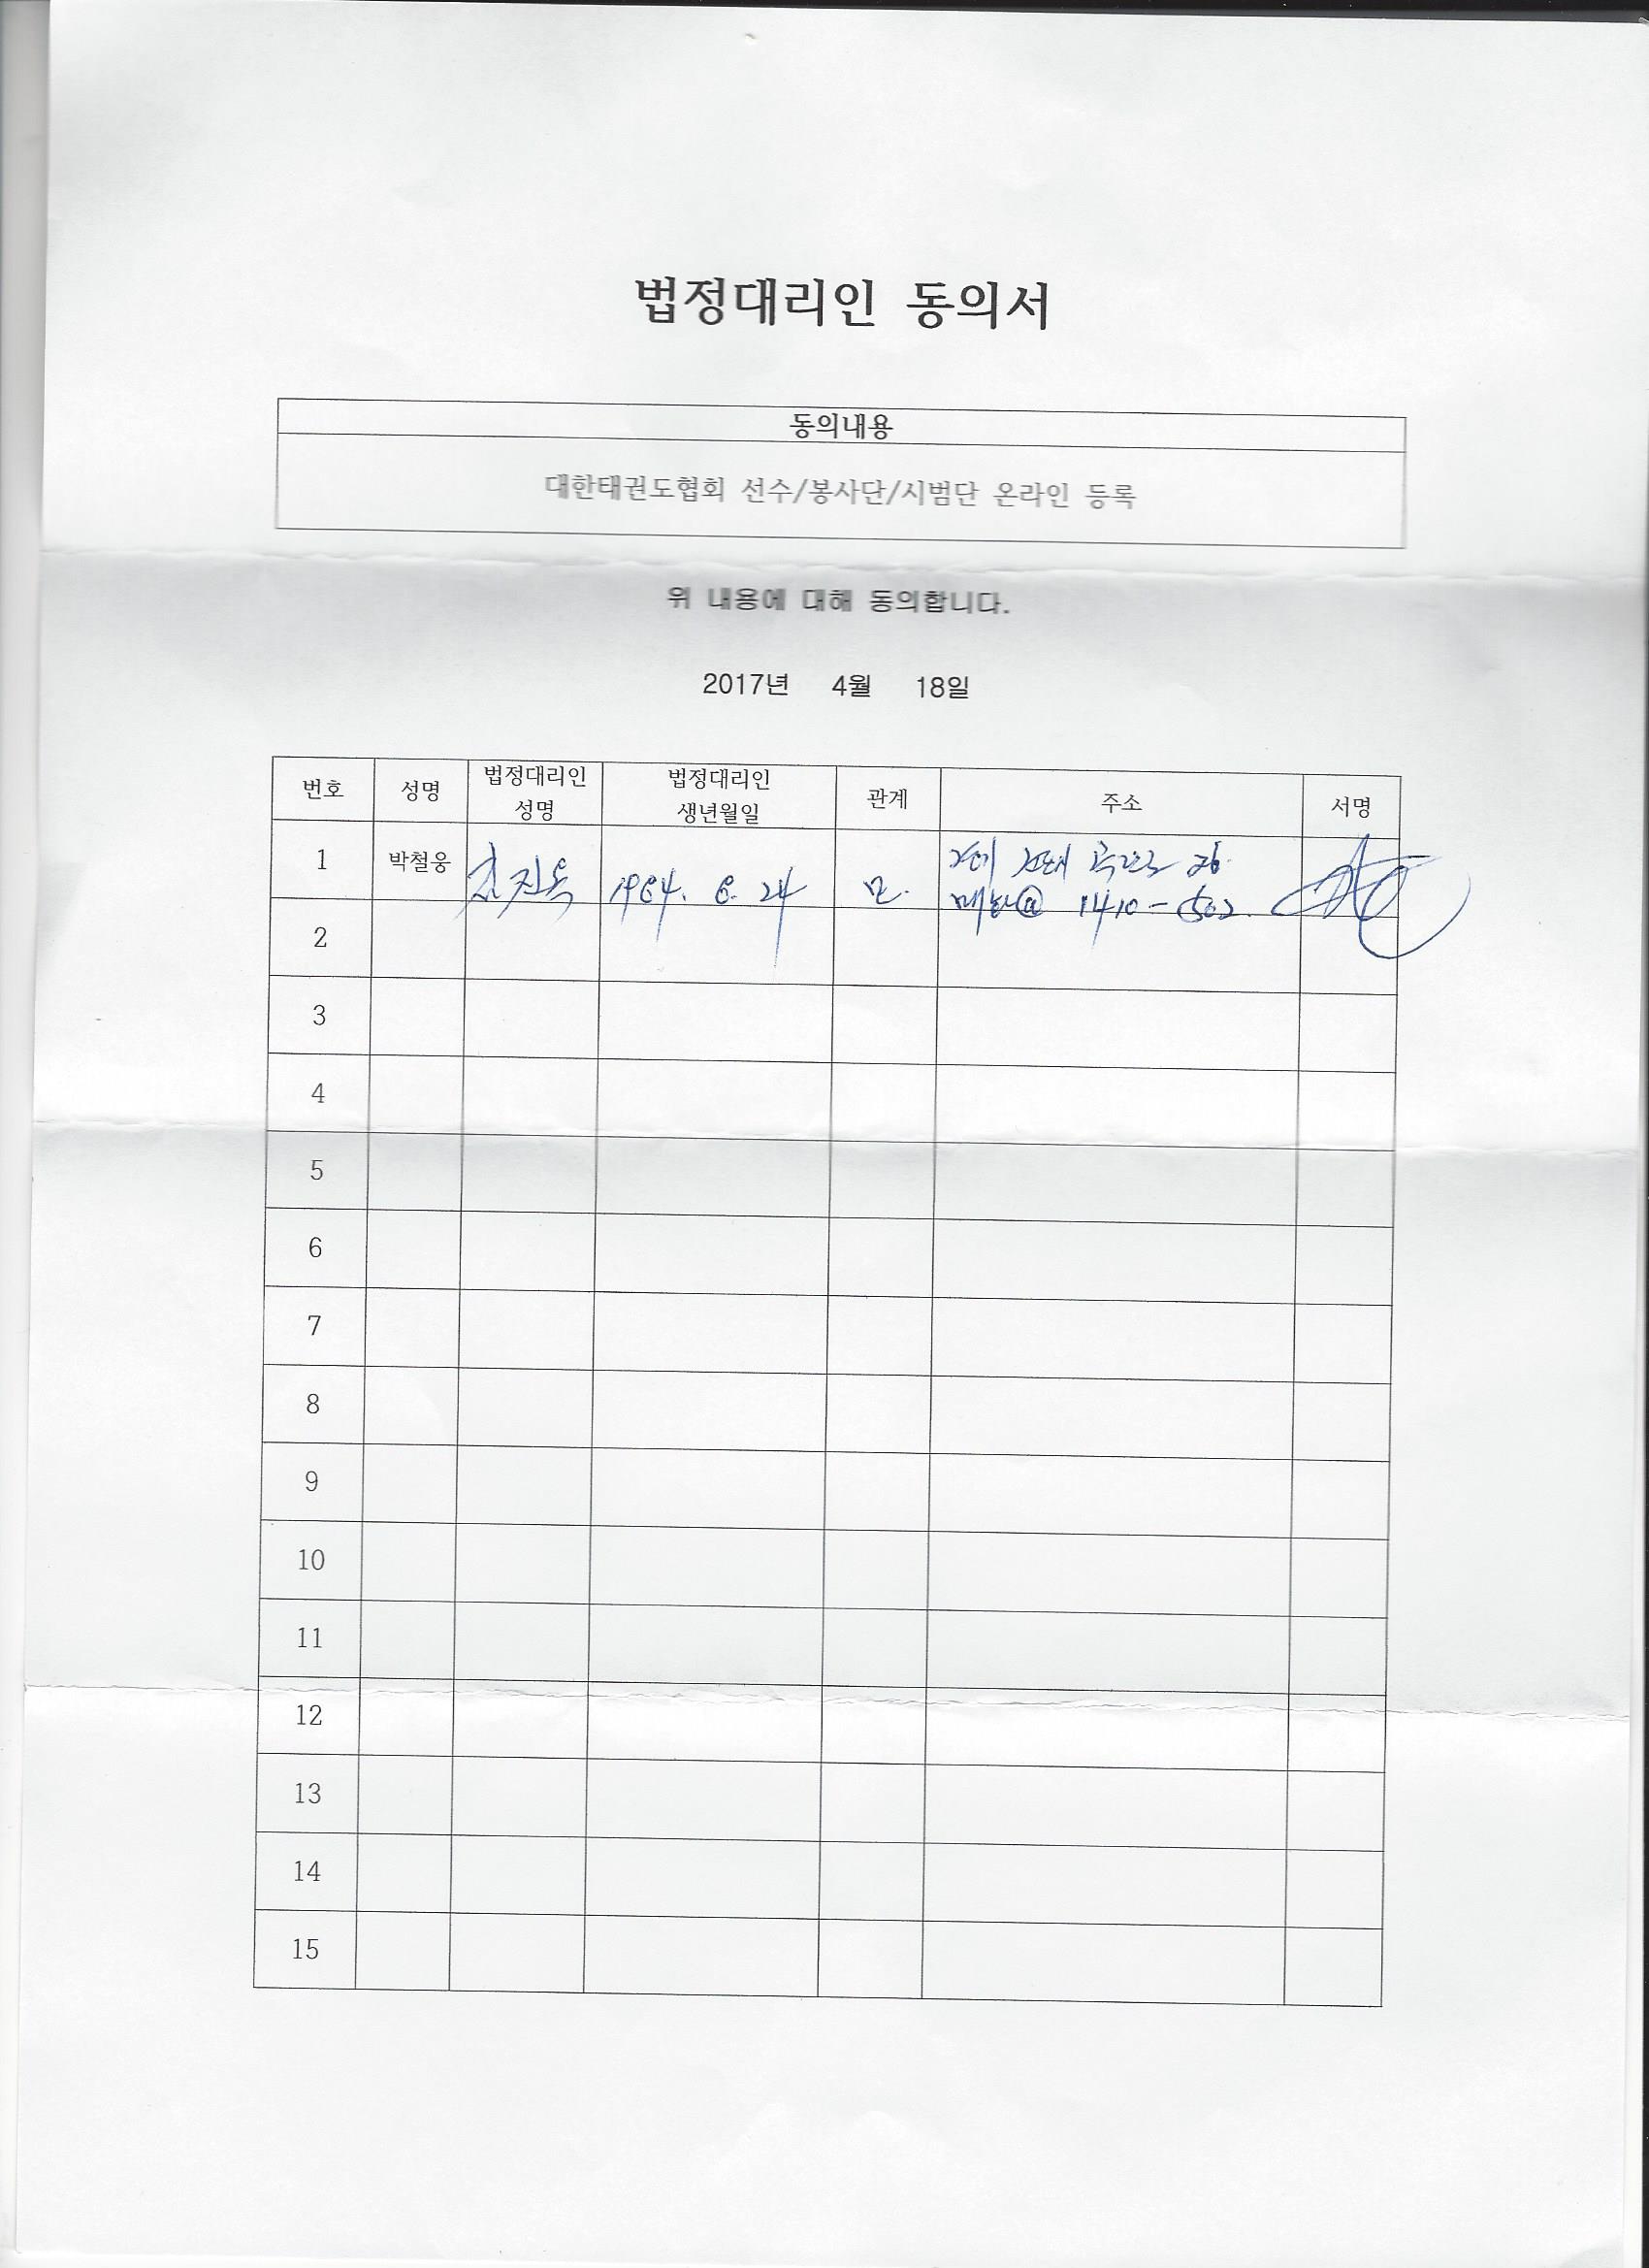 법정대리인 동의서
동의내용
대한태권도협회 선수/봉사단/시범단 온라인 등록
위 내용에 대해 동의합니다.
2017년 4월 18일
번호 성명 법정대리인 성명 법정대리인 생년월일 관계 주소 서명
1 박철웅 1964. 6. 24 모.
1410-502
2
3
4
5
6
7
8
9
10
11
12
13
14
15